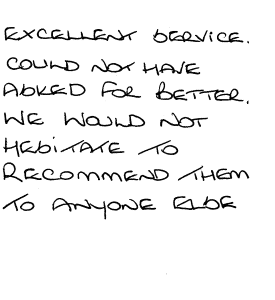 EXCELLENT SERVICE.
COULD NOT HAVE
ASKED FOR BETTER.
WE WOULD NOT
HESITATE TO
RECOMMEND THEM
TO ANYONE ELSE